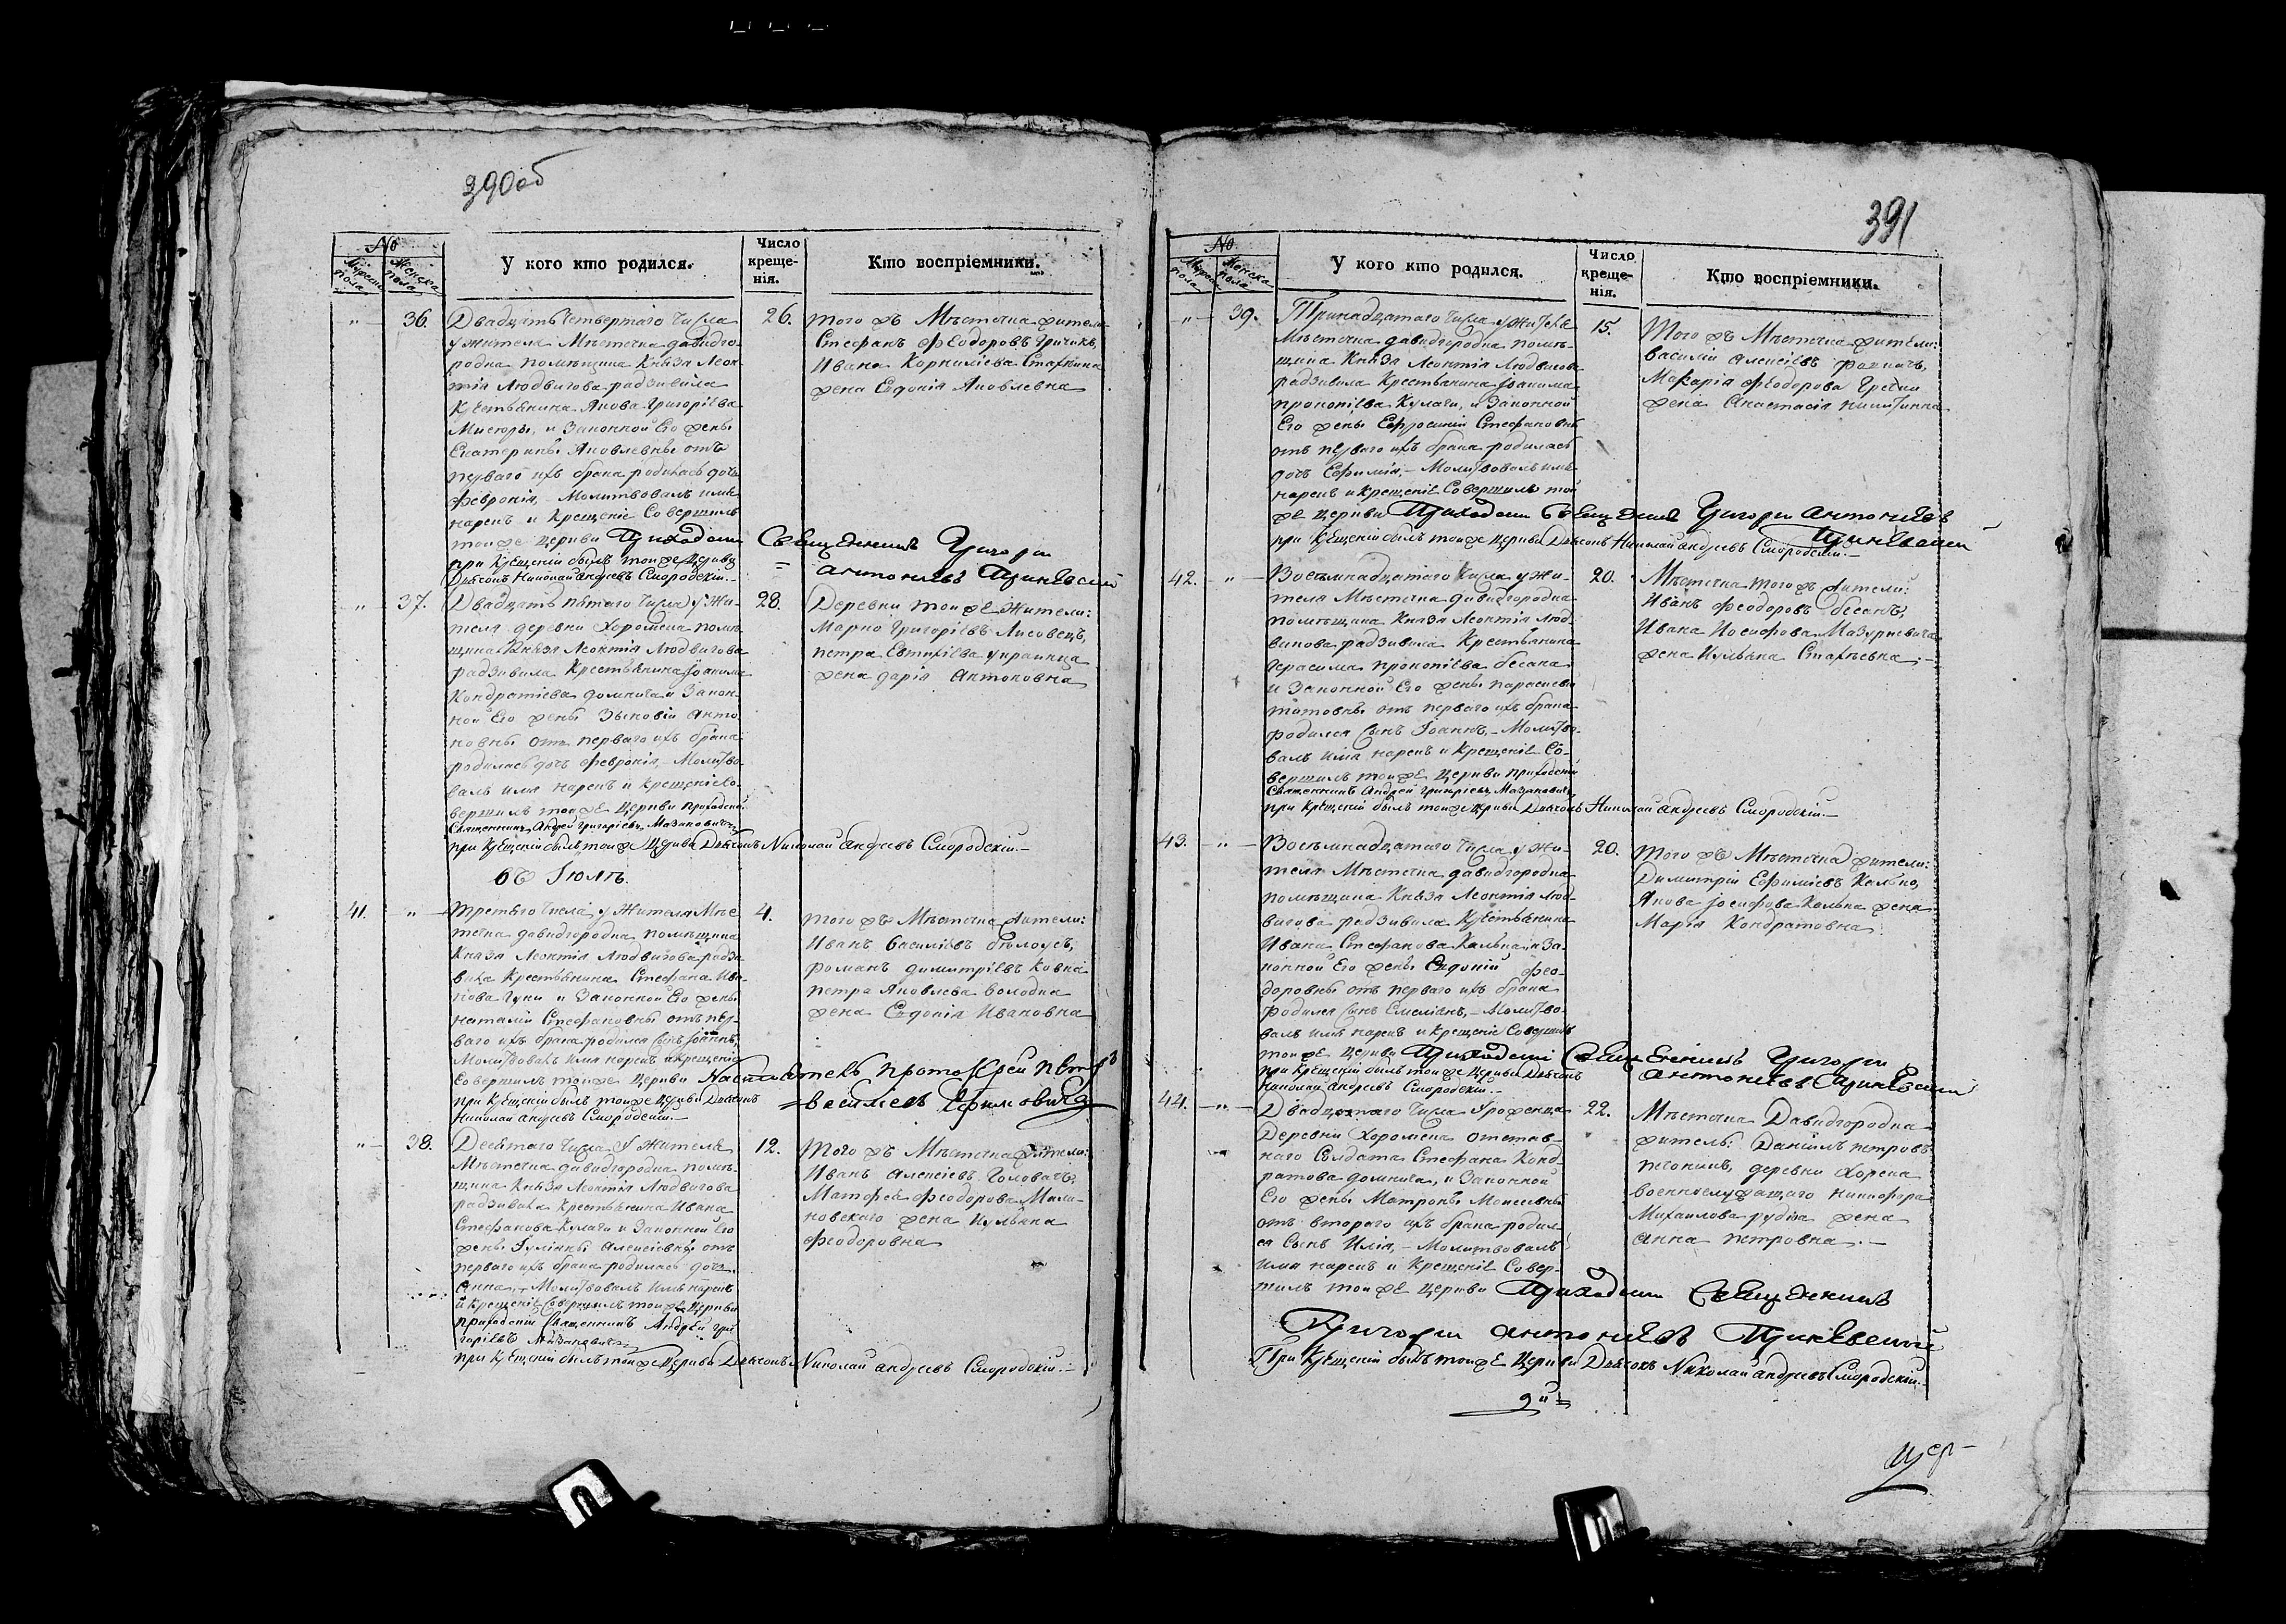 390об
№
Мужеска пола
Женска пола
У кого кто родился.
Число крещенія.
Кто воспріемники.
" 36. Двадцать четвертаго числа
у жителя Мѣстечка Давидго-
родка помѣщика Князя Леон-
тія Людвигова Радзивила
Крестьянина Якова Григоріева
и Законной Его жены
Екатерины Яковлевны отъ
перваго ихъ брака родилась дочь
Февронія, - Молитвовалъ имя
нарекъ и Крещеніе Совершилъ
тойже Церкви Приходскій Священникъ Григорій
Антоніевъ
при Крещеніи былъ тойже Церкви
Дьяконъ Николай Андреевъ Смородскій.-
26. того жъ Мѣстечка жители
Стефанъ Феодоровъ
Ивана Корниліева
жена Евдокія Яковлевна
" 37. Двадцать пятаго числа у Жи-
теля деревни Хоромска помѣ-
щика Князя Леонтія Людвигова
Радзивила Крестьянина Іоакима
Кондратіева Домнича и Закон-
ной Его жены Зѣновіи Анто-
новны отъ перваго ихъ брака
родилась дочь Февронія, - Молитво-
валъ имя нарекъ и Крещеніе Со-
вершилъ тойже Церкви приходскій
Священникъ Андрей Григоріевъ Мазановичъ
при Крещеніи былъ тойже Церкви Дьяконъ Николай Андреевъ Смородскій.-
28. Деревни тойже Жители:
Марко Григоріевъ Лисовецъ,
Петра Евтихіева Украинца
жена Дарія Антоновна
въ Іюлѣ.
41. " Третьяго числа, у Жителя Мѣс-
течка Давидгородка помѣщика
Князя Леонтія Людвигова Радзи-
вила Крестьянина Стефана Ива-
нова и Законной Его жены
Наталіи Стефановны отъ пер-
ваго ихъ брака родился Сынъ Іоаннъ,
Молитвовалъ имя нарекъ и Крещеніе
Совершилъ тойже Церкви Настоятель Протоіерей Петръ
Васильевъ Ефимовичъ
при Крещеніи былъ тойже Церкви Дьяконъ
Николай Андреевъ Смородскій.-
4. того жъ Мѣстечка жители:
Иванъ Василіевъ Бѣлоусъ,
Романъ Димитріевъ
Петра Яковлева
жена Евдокія Ивановна
" 38. Десятаго числа у Жителя
Мѣстечка Давидгородка помѣ-
щика Князя Леонтія Людвигова
Радзивила Крестьянина Ивана
Стефанова Кулаги и Законной Его
жены Іуліаны Алексіевны отъ
перваго ихъ брака родилась дочь
Анна, - Молитвовалъ имя нарекъ
и Крещеніе Совершилъ тойже Церкви
приходскій Священникъ Андрей Гри-
горіевъ Мазановичъ
при Крещеніи былъ тойже Церкви Дьяконъ Николай Андреевъ Смородскій.-
12. Того жъ Мѣстечка жители:
Иванъ Алексіевъ Головачъ,
Матфея Феодорова Мали-
новскаго жена Кульяна
Феодоровна
391
№
Мужеска пола
Женска пола
У кого кто родился.
Число крещенія.
Кто воспріемники.
" 39. Тринадцатаго числа у Жителя
Мѣстечка Давидгородка помѣ-
щика Князя Леонтія Людвигова
Радзивила Крестьянина Іоакима
Прокопіева Кулаги, и Законной
Его жены Ефросиніи Стефановны
отъ перваго ихъ брака родилась
дочь Ефимія, - Молитвовалъ имя
нарекъ и Крещеніе Совершилъ той
же Церкви Приходскій Священникъ Григорій Антоніевъ
при Крещеніи былъ тойже Церкви Дьяконъ Николай Андреевъ Смородскій.-
15. Того жъ Мѣстечка жители:
Василій Алексіевъ
Макарія Феодорова Гречки
жена Анастасія Никитична
42. " Восемнадцатаго числа у Жи-
теля Мѣстечка Давидгородка
помѣщика Князя Леонтія Люд-
вигова Радзивила Крестьянина
Герасима Прокопіева Бесана
и Законной Его жены Параскевы
Титовны отъ перваго ихъ брака
родился Сынъ Іоаннъ, - Молитво-
валъ имя нарекъ и Крещеніе Со-
вершилъ тойже Церкви приходскій
Священникъ Андрей Григоріевъ Мазановичъ
при Крещеніи былъ тойже Церкви Дьяконъ Николай Андреевъ Смородскій.-
20. Мѣстечка того жъ жители:
Иванъ Феодоровъ Бесанъ,
Ивана Иосифова Мазуркевича
жена Кульяна
43. " Восемнадцатаго числа у Жи-
теля Мѣстечка Давидгородка
помѣщика Князя Леонтія Люд-
вигова Радзивила Крестьянина
Ивана Стефанова и За-
конной Его жены Евдокіи Фео-
доровны отъ перваго ихъ брака
родился Сынъ Емеліянъ, - Молитво-
валъ имя нарекъ и Крещеніе Совершилъ
тойже Церкви Приходскій Священникъ Григорій
Антоніевъ
при Крещеніи былъ тойже Церкви Дьяконъ
Николай Андреевъ Смородскій.-
20. Того жъ Мѣстечка жители:
Димитрій Ефиміевъ
Якова Іосифова жена
Марія Кондратовна
44. " Двадцатаго числа Уроженца
Деревни Хоромска отстав-
наго Солдата Стефана Конд-
ратова Домнича, и Законной
Его жены Матроны Моисеевны
отъ втораго ихъ брака родил-
ся Сынъ Илія, - Молитвовалъ
имя нарекъ и Крещеніе Совер-
шилъ тойже Церкви Приходскій Священникъ
Григорій Антоніевъ
При Крещеніи былъ тойже Церкви Дьяконъ Николай Андреевъ Смородскій.-
22. Мѣстечка Давидгородка
житель: Даніилъ Петровъ
деревни Хорска
военнослужащаго Никифора
Михаилова жена
Анна Петровна.-